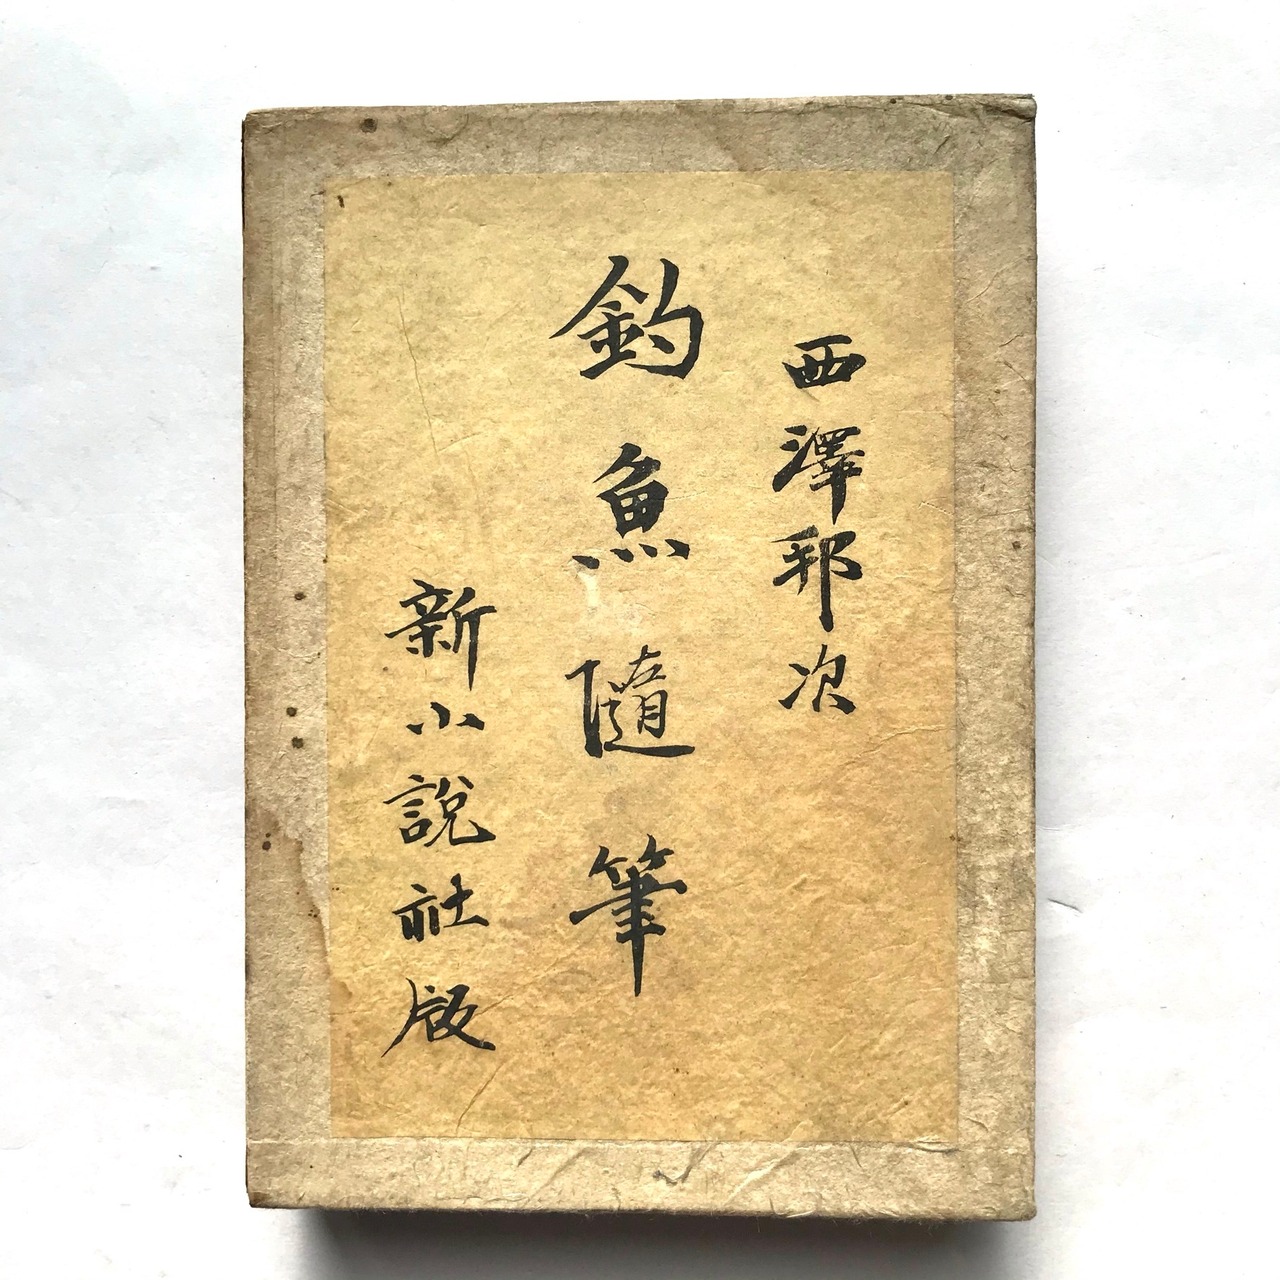 西澤邪次
釣魚隨筆
新小説社版